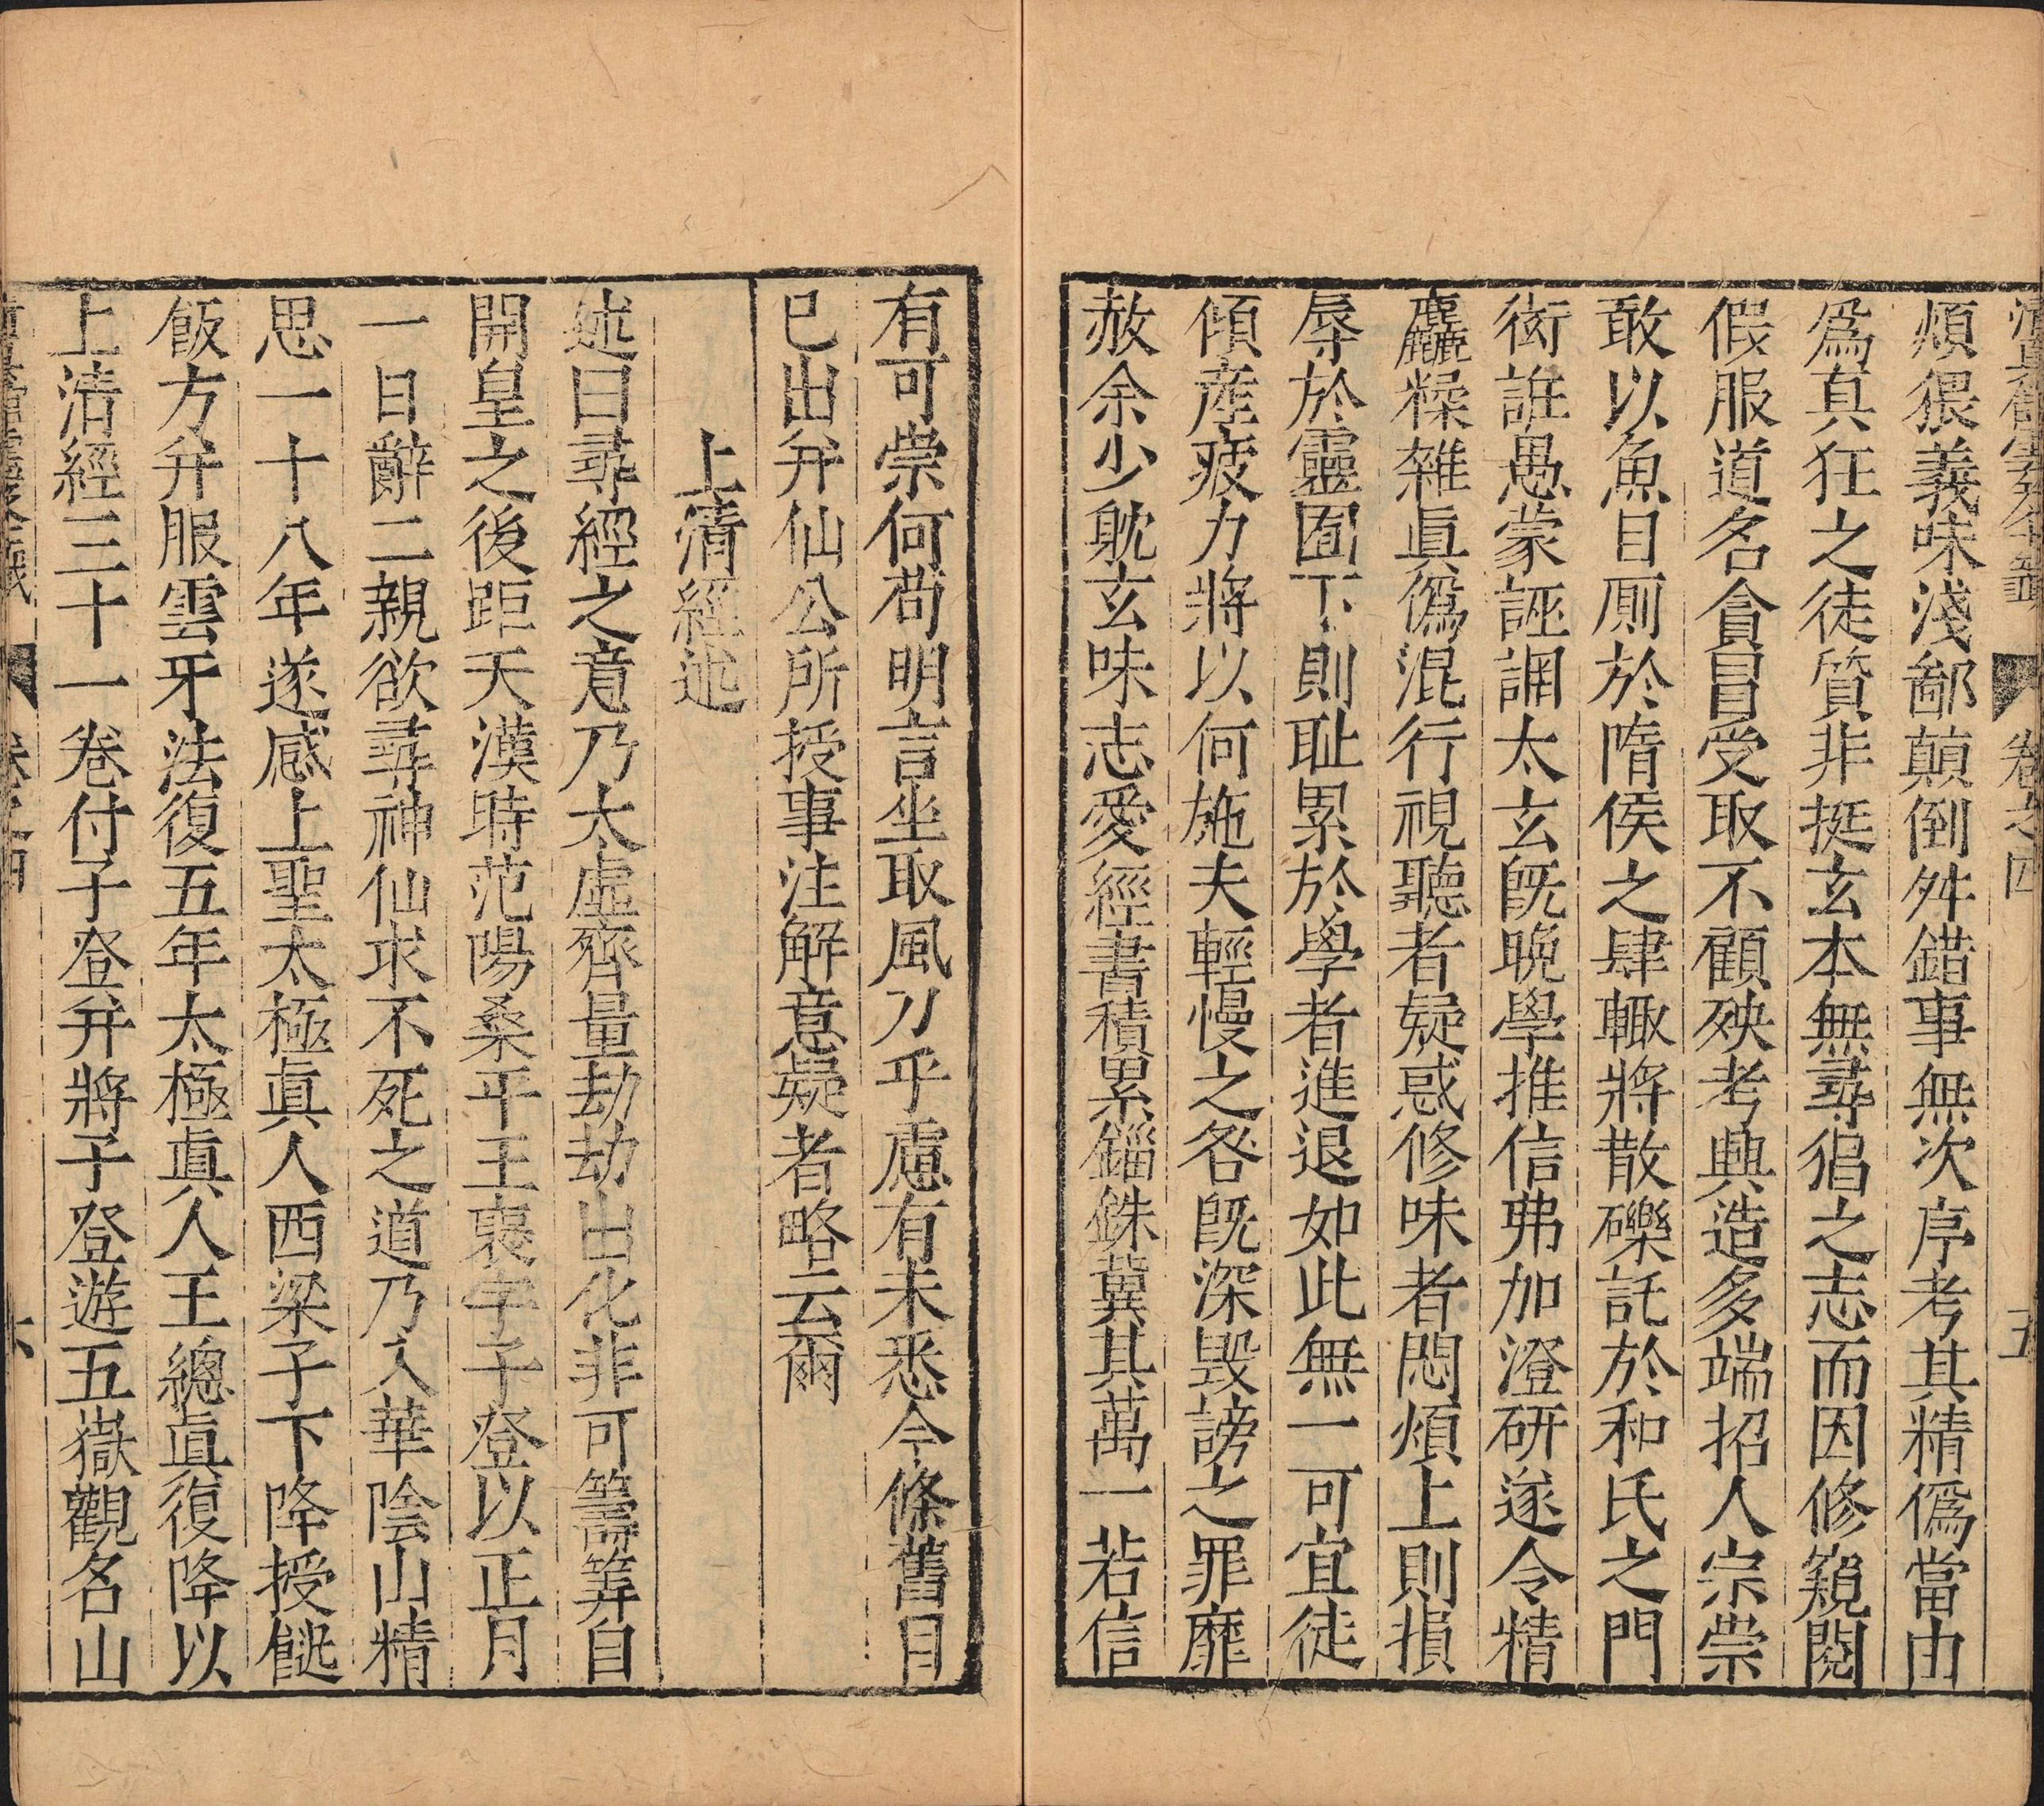 卷之四
五
煩猥義味淺鄙顛倒舛錯事無次序考其精僞當由
爲真狂之徒質非挺玄本無尋狷之志而因修窺閱
假服道名貪冒受取不顧殃考興造多端招人宗崇
敢以魚目厠於隋侯之肆輙將散礫託於和氏之門
衒誑愚蒙誣誷太玄旣晚學推信弗加澄研遂令精
麤糅雜眞僞混行視聽者疑惑修味者悶煩上則損
辱於靈囿下則耻累於學者進退如此無一可宜徒
傾産疲力將以何施夫輕慢之咎旣深毀謗之罪靡
赦余少躭玄味志愛經書積累錙銖冀其萬一若信
有可崇何苟明言坐取風刀乎慮有未悉今條舊目
已出幷仙公所授事注解意疑者略云爾
上淸經述
述曰尋經之意乃太虛齊量劫劫出化非可籌筭自
開皇之後距天漢時范陽桑平王襃字子登以正月
一日辭二親欲尋神仙求不死之道乃入華陰山精
思一十八年遂感上聖太極眞人西梁子下降授䭀
飯方幷服雲牙法復五年太極眞人王總眞復降以
上清經三十一卷付子登幷將子登遊五嶽觀名山
卷之四
六